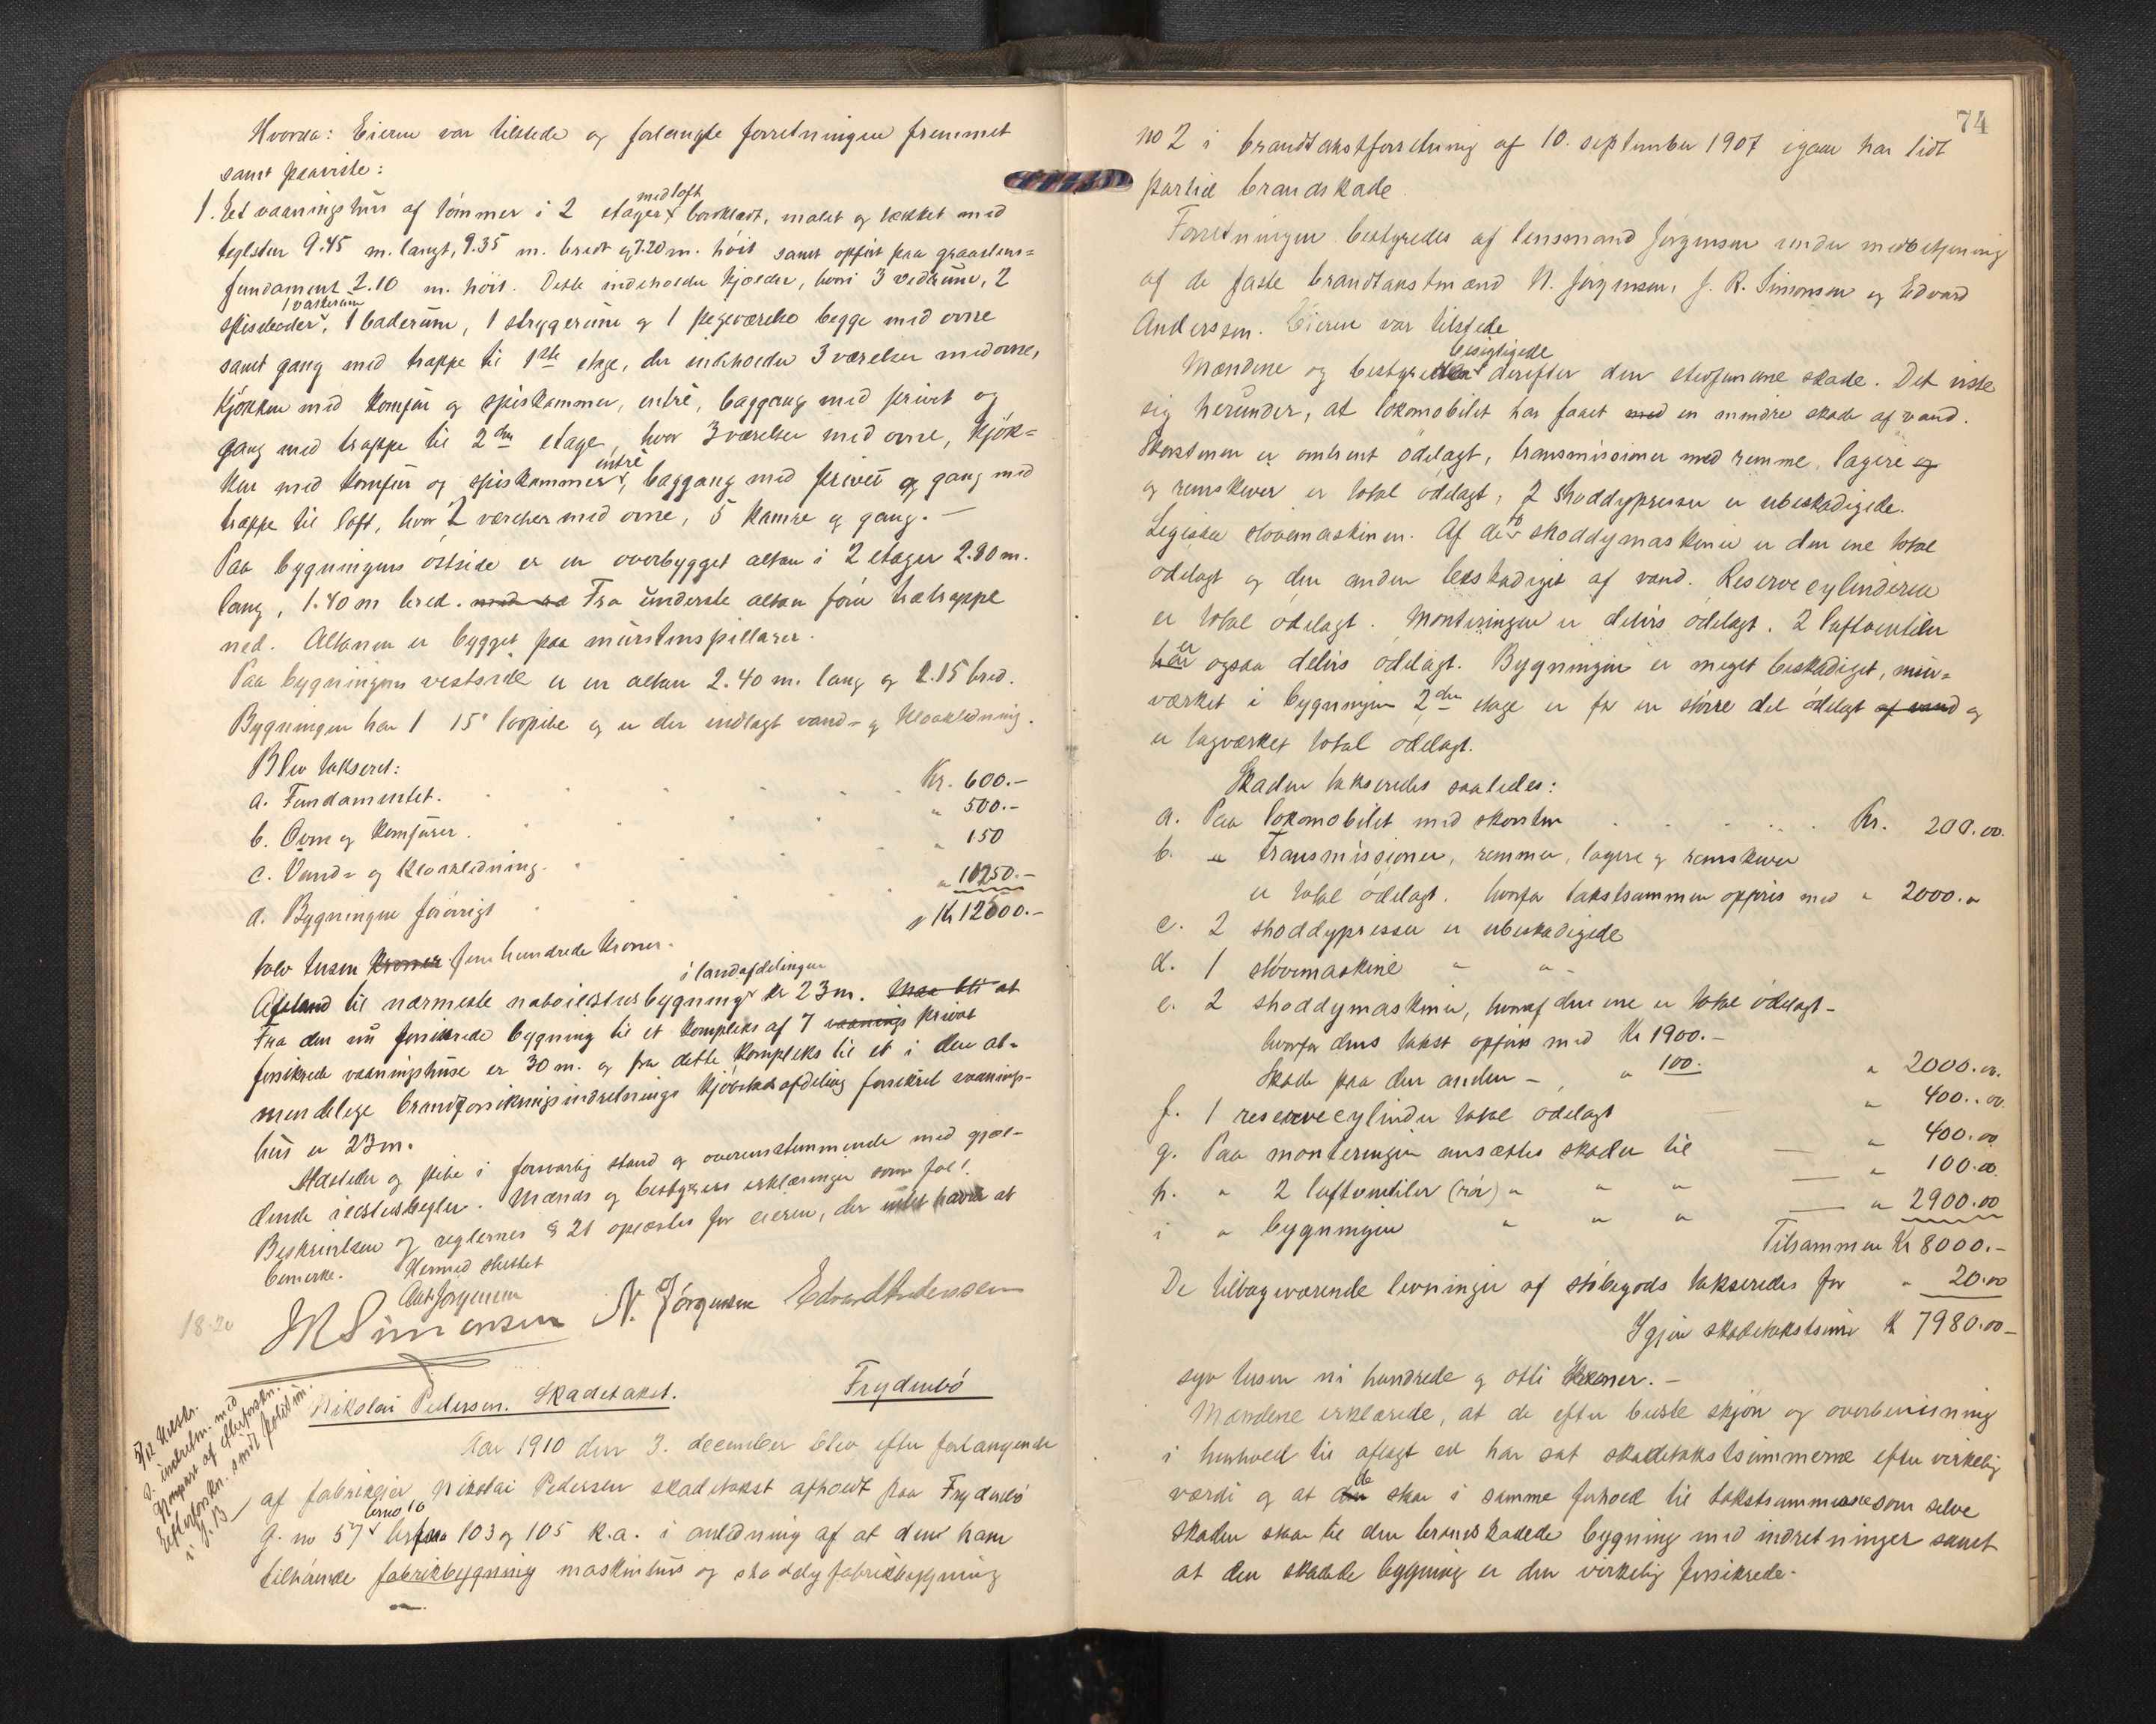 Hvorda: Eieren var tilstede og forlangte forretningen fremmet
samt paaviste:
1. Et vaaningshus af tömmer i 2 etager med loft bordklædt, malet og tækket med
teglsten 9.45 m. langt, 9.35 m. bredt og 7.20 m. höit samt opfört paa graastens=
fundament 2.10 m. höit. Dette indeholder kjælder, hvori 3 vedrum, 2
spiseboder, 1 vaskerum, 1 baderum, 1 strygerum og 1 pigeværelse begge med ovne
samt gang med trappe til 1ste etage, der indeholder 3 værelser med ovne,
kjökken med komfur og spiskammer, entré, baggang med privet og
gang med trappe til 2den etage, hvor 3 værelser med ovne, kjök=
ken med komfur og spiskammer, entré, baggang med privet og gang med
trappe til loft, hvor 2 værelser med ovne, 5 kamre og gang. —
Paa bygningens östside er en overbygget altan i 2 etager 2.80 m.
lang, 1.40 m bred. Fra underste altan förer trætrappe
ned. Altanen er bygget paa murstenspillarer.
Paa bygningens vestside er en altan 2.40 m. lang og 1.15 bred.
Bygningen har 1 15" löppibe og er der indlagt vand- og kloakledning.
Blev takseret:
a. Fundamentet. Kr. 600.-
b. Ovne og komfurer. " 500.-
c. Vand= og kloakledning. " 150
d. Bygningen forövrigt " 11250.-
Kr 12500.-
tolv tusen kroner fem hundrede kroner.
Afstand til nærmeste naboildstedsbygning i landafdelingen er 23 m. Maa bli at
Fra den nu forsikrede bygning til et kompleks af 7 vaanings privat
forsikrede vaaningshuse er 30 m. og fra dette kompleks til et i den al=
mindelige brandforsikringsindretnings kjöbstadsafdeling forsikret vaanings-
hus er 23 m.
Ildsteder og pibe i forsvarlig stand og overensstemmende med gjæl-
dende ildstedsregler. Mænds og bestyrers erklæringer som fol!
Beskrivelsen og reglernes § 21 oplæstes for eieren, der intet havde at
bemerke. Hermed sluttet
Ant Jörgensen
J R Simonsen N. Jörgensen Edvard Anderssen
18.20
Nikolai Pedersen. Skadetakst. Frydenbö
Aar 1910 den 3. december blev efter forlangende
af fabrikeier Nikolai Pedersen skadetakst afholdt paa Frydenbö
g. no 57 brno 16 103 og 105 k.a. i anledning af at den ham
tilhörende fabrikbygning maskinhus og shoddyfabrikbygning
74
no 2 i brandtakstforretning af 10. september 1907 igaar har lidt
partiel brandskade.
Forretningen bestyredes af lensmand Jörgensen under medbetjening
af de faste brandtakstmænd N. Jörgensen, J. R. Simonsen og Edvard
Anderssen. Eieren var tilstede
Mændene og bestyreren besigtigede derefter den stedfundne skade. Det viste
sig herunder, at lokomobilet har faaet med en mindre skade af vand.
Skorstenen er omtrent ödelagt, transmissioner med remme, lagere og
og remskiver er total ödelagt, 2 shoddypresser er ubeskadigede.
Ligesaa stövemaskinen. Af de 2 shoddymaskiner er den ene total
ödelagt og den anden beskadiget af vand. Reservecylinderen
er total ödelagt. Monteringen er delvis ödelagt. 2 luftventiler
er ogsaa delvis ödelagt. Bygningen er meget beskadiget, mur=
værket i bygningen 2den etage er for en större del ödelagt af vand og
er tagværket total ödelagt.
Skaden takseredes saaledes:
a. Paa lokomobilet med skorsten Kr. 200.00.
b. " transmissioner, remmer, lagere og remskiver
er total ödelagt. hvorfor takstsummen opföres med " 2000. "
c. 2 shoddypresser er ubeskadigede
d. 1 stövemaskine " "
e. 2 shoddymaskiner, hvoraf den ene er total ödelagt -
hvorfor dens takst opföres med Kr 1900.-
Skade paa den anden - " 100. " 2000.00.
f. 1 reservecylinder total ödelagt " 400.00
g. Paa monteringen ansættes skaden til — " 400.00
h. " 2 luftventiler (rör) " " " — " 100.00
i " bygningen " " " — " 2900.00
Tilsammen Kr 8000.-
De tilbageværende levninger af stöbegods takseredes for " 20.00
Igjen skadetakstsum K 7980.00-
syv tusen ni hundrede og otti kroner. -
Mændene erklærede, at de efter bedste skjön og overbevisning
i henhold til aflagt ed har sat skadetakstsummerne efter virkelig
værdi og at de staar i samme forhold til takstsummerne som selve
skaden staar til den brandskadede bygning med indretninger samt
at den skadede bygning er den virkelig forsikrede.